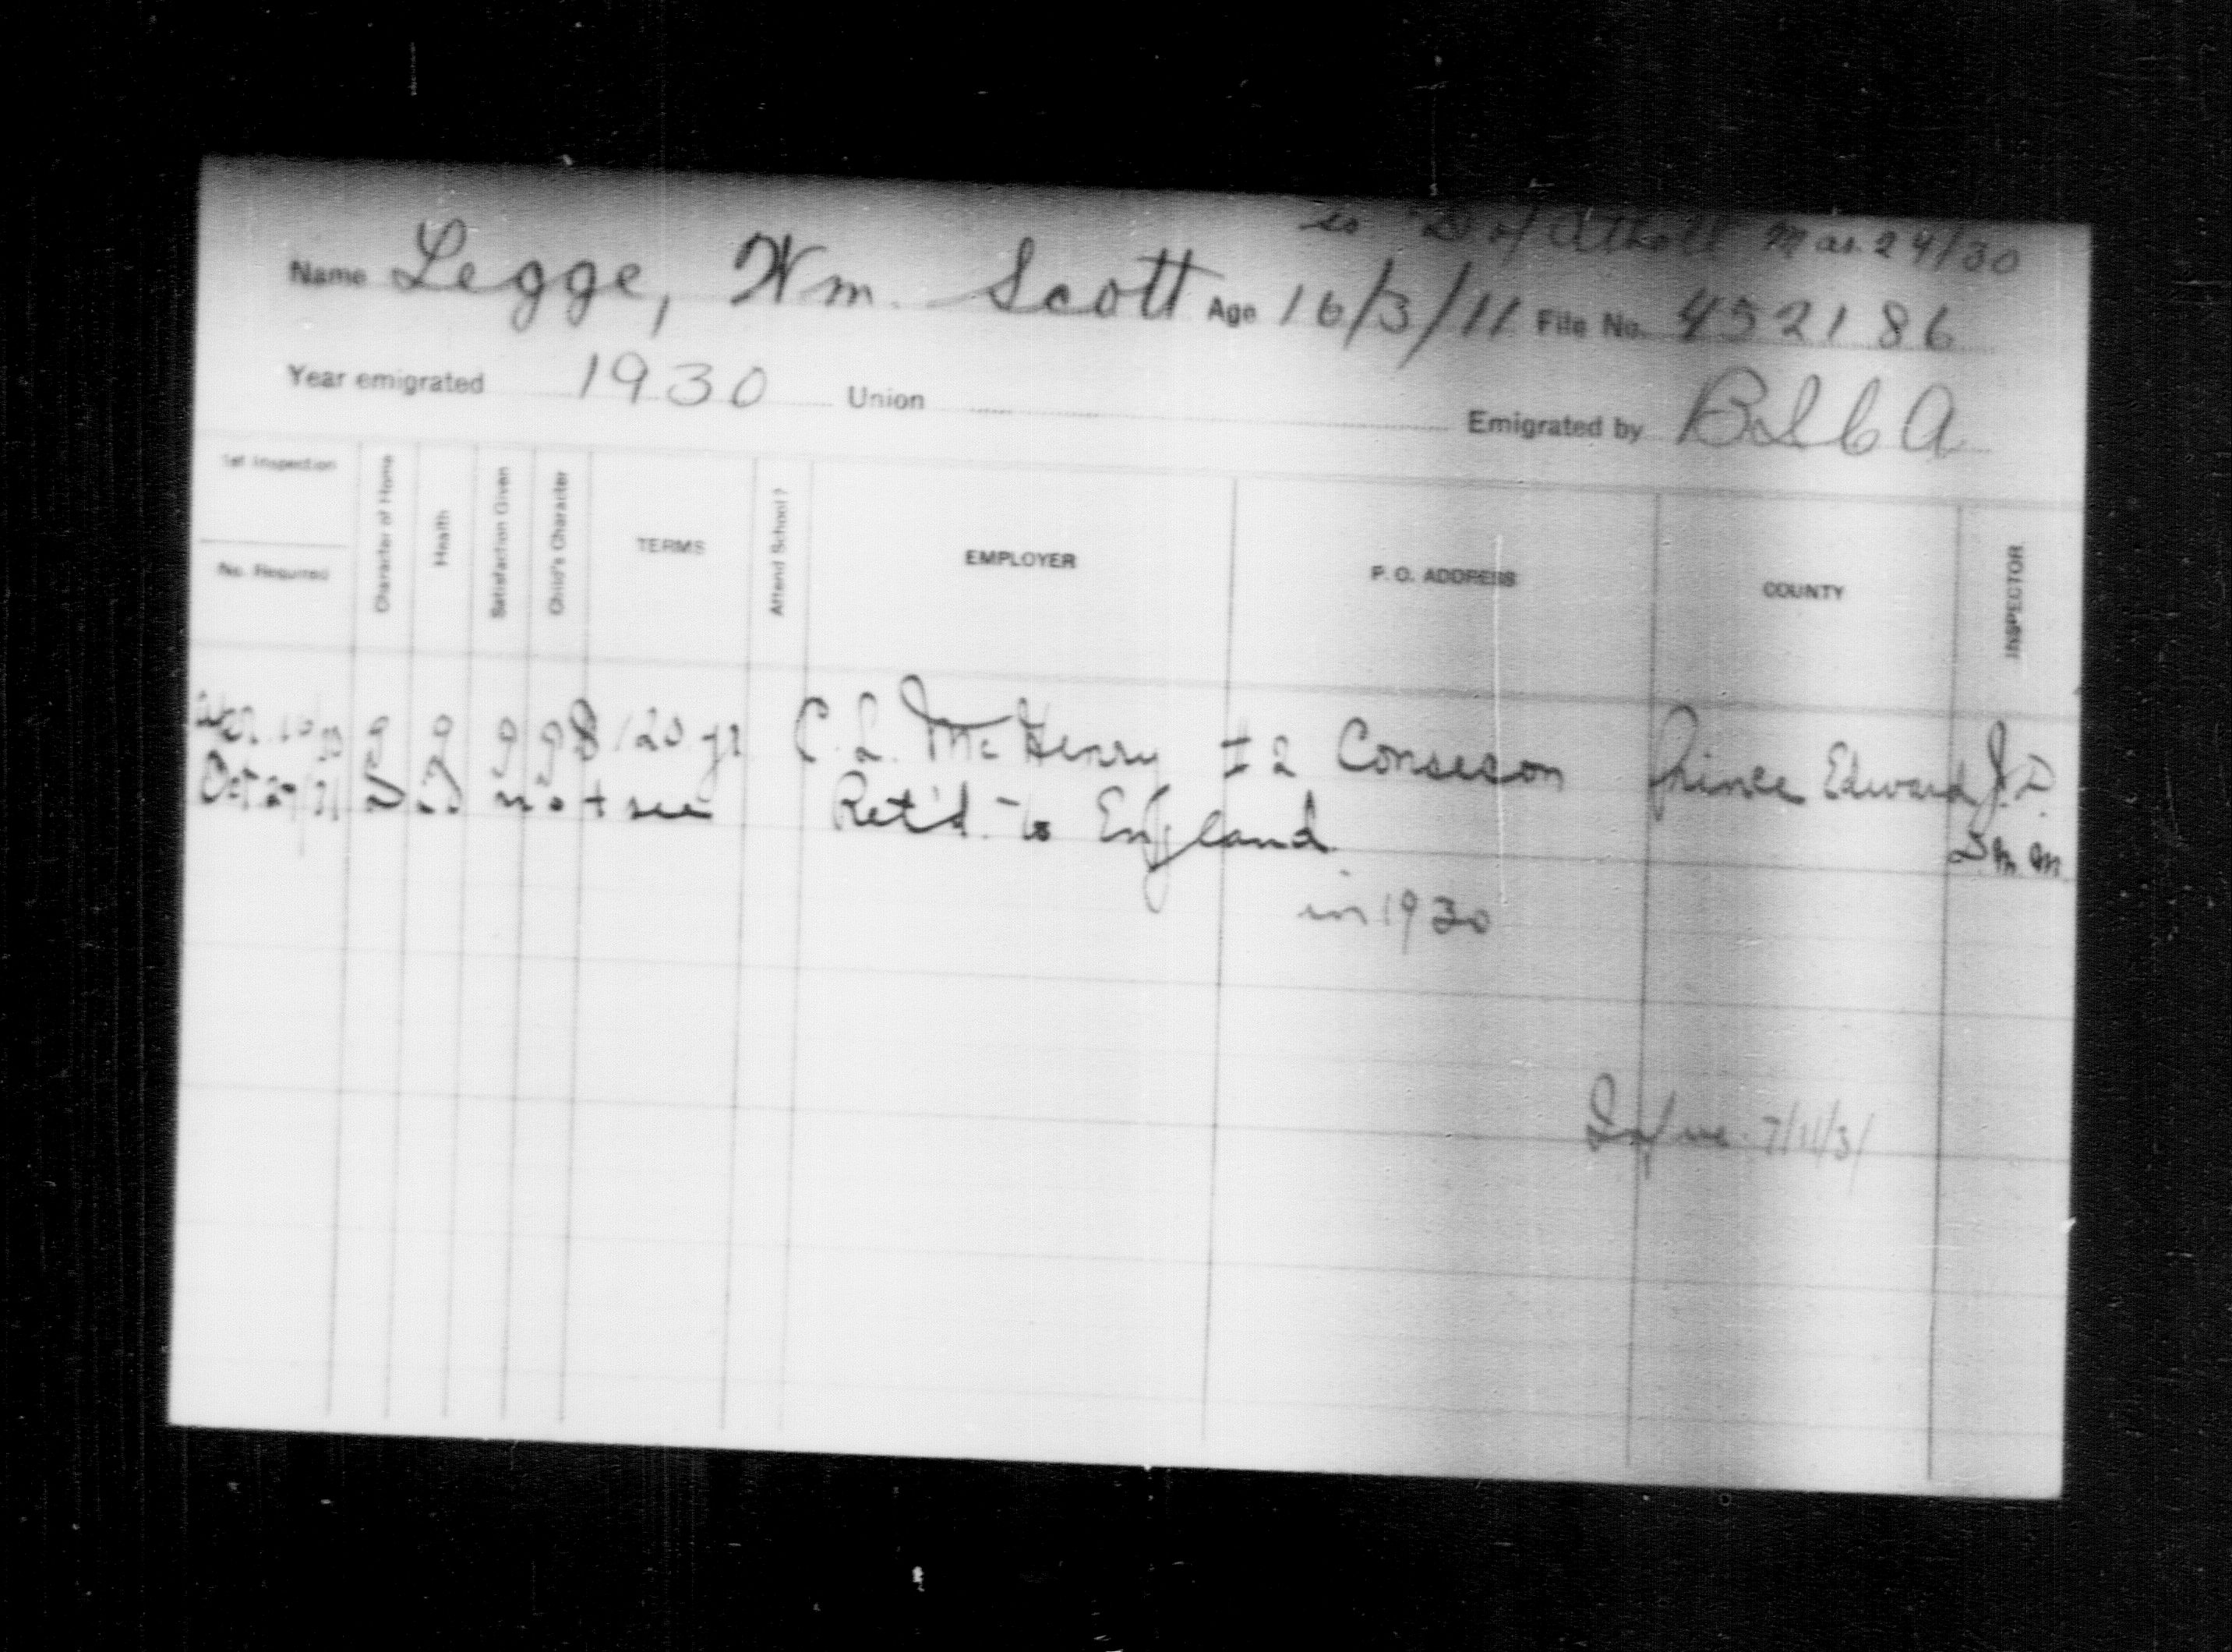 ss D of Atholl Mar 24/30
Name Legge, Wm. Scott Age 16/3/11 File No. 452186
Year emigrated 1930 Union Emigrated by BICA
1st Inspection
No. Required
Character of Home
Health
Satisfaction Given
Child's Character
TERMS
Attend School?
EMPLOYER
P. O. ADDRESS
COUNTY
INSPECTOR
g g g g $120 yr C. L. McHenry #2 Consecon Prince Edward J.D.
Oct 29/31 D.D not see Ret'd. to England D.M.M.
in 1930
7/11/31